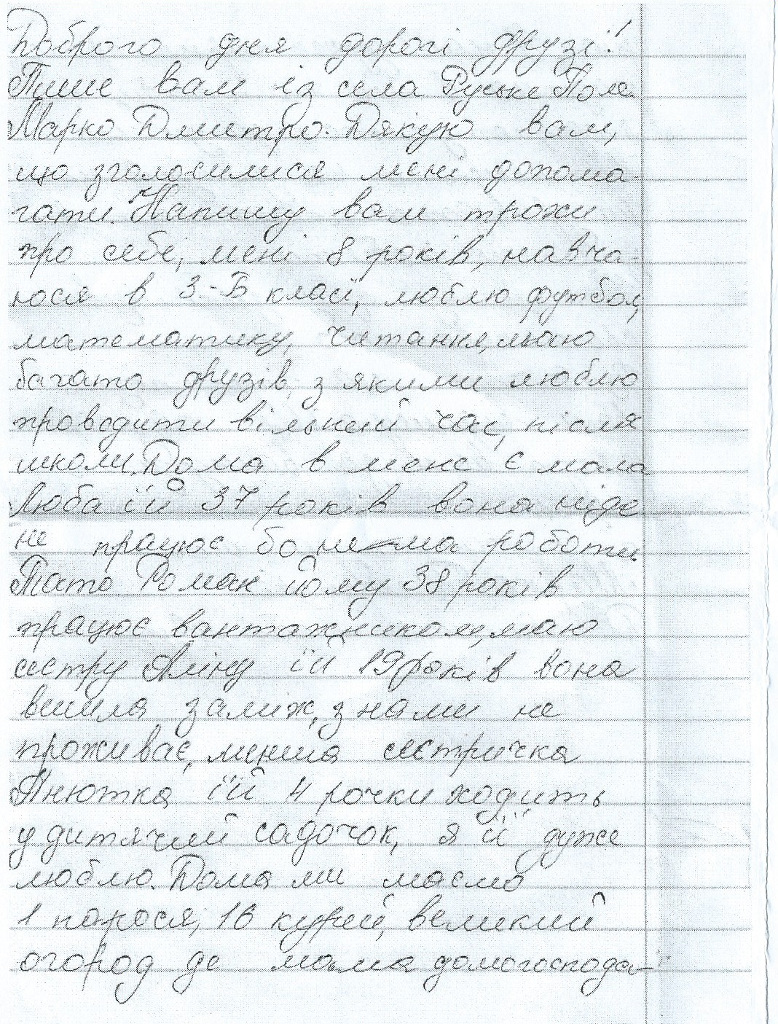 Доброго дня дорогі друзі!
Пише вам із села Руське Поле
Марко Дмитро. Дякую вам,
що зголосилися мені допома-
гати. Напишу вам трохи
про себе, мені 8 років, навча-
юся в 3-Б класі, люблю футбол,
математику, читання, маю
багато друзів з якими люблю
проводити вільний час, після
школи. Дома в мене є мама
Люба їй 37 років вона ніде
не працює бо нема роботи.
Тато Роман йому 38 років
працює вантажником, маю
сестру Аліну їй 19 років вона
вийшла заміж, з нами не
проживає, менша сестричка
Анютка їй 4 рочки ходить
у дитячий садочок, я її дуже
люблю. Дома ми маємо
1 порося, 16 курей, великий
огород де мама домогоспода-